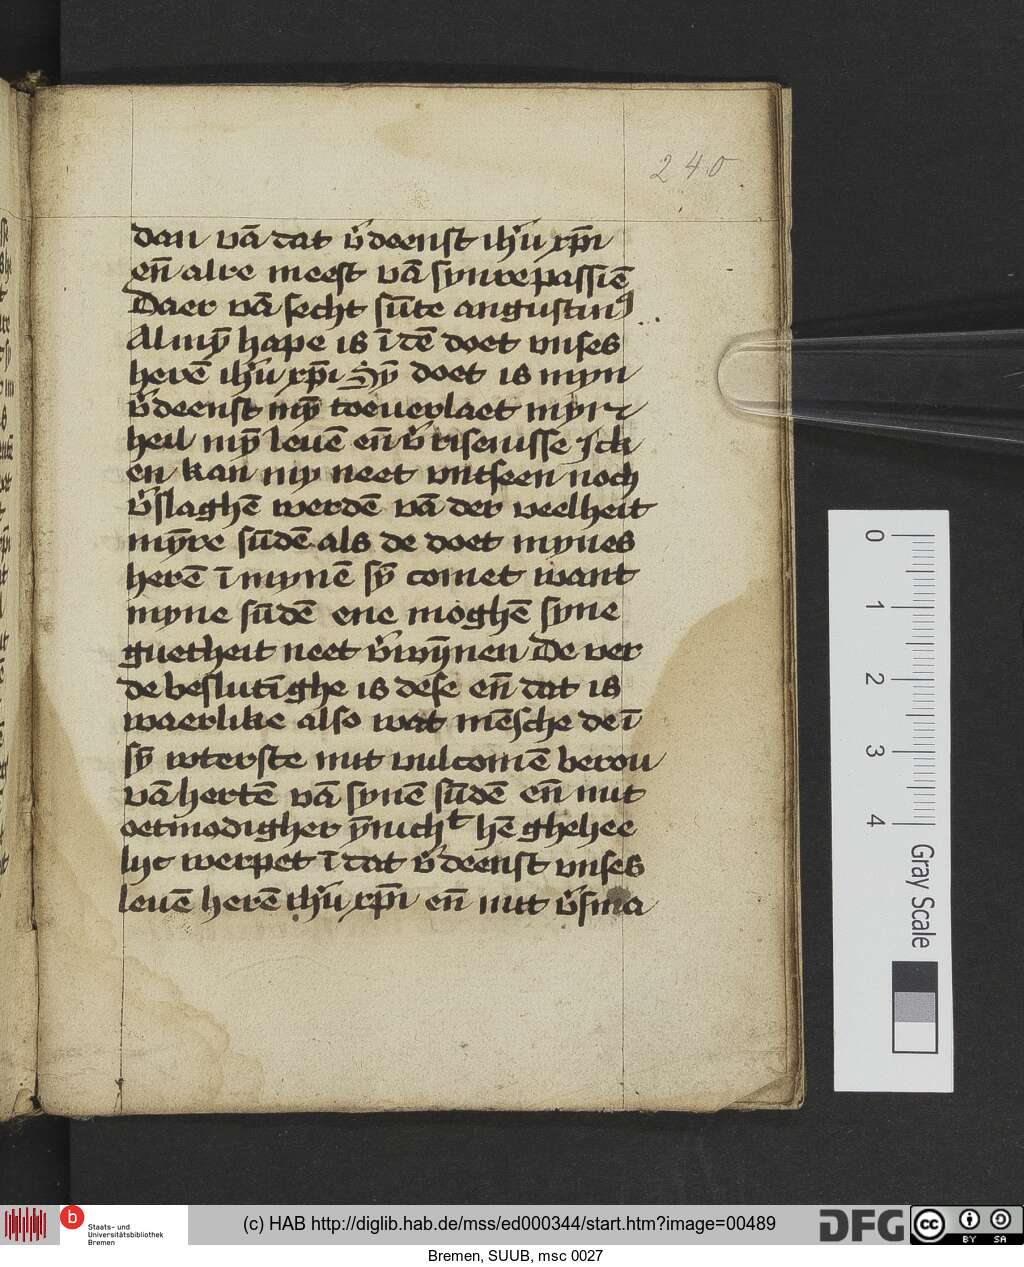 240
dan vā dat v̄deenst ih̄u xp̄i
en̄ alre meest vā synre passiē
Daer vā secht sūte augustin9
Al mȳ hape is ī dē doet vnses
herē ih̄u xp̄i Sy̅ doet is myn
v̄deenst my̅ toeuerlaet myn
heil my̅ leuē en̄ v̄risenisse Ick
en kan my neet vntseen noch
v̄slaghē werdē vā der veelheit
my̅re sūdē als de doet mynes
herē ī mynē sy̅ comet want
myne sūdē ene moghē syne
guetheit neet v̄wy̅nen De ver
de beslutīghe is dese en̄ dat is
waerlike also wat mēsche de ī
sy̅ wterste mit vulcomē berou
vā hertē vā synē sūdē en̄ mit
oetmodigher y̅nicht hē ghehee
lyc werpet ī dat v̄deenst vnses
leuē herē ih̄u xp̄i en̄ mit v̄sma
0
1
2
3
4
Gray Scale
b
Staats- und
Universitätsbibliothek
Bremen
(c) HAB http://diglib.hab.de/mss/ed000344/start.htm?image=00489
DFG
cc
BY SA
Bremen, SUUB, msc 0027